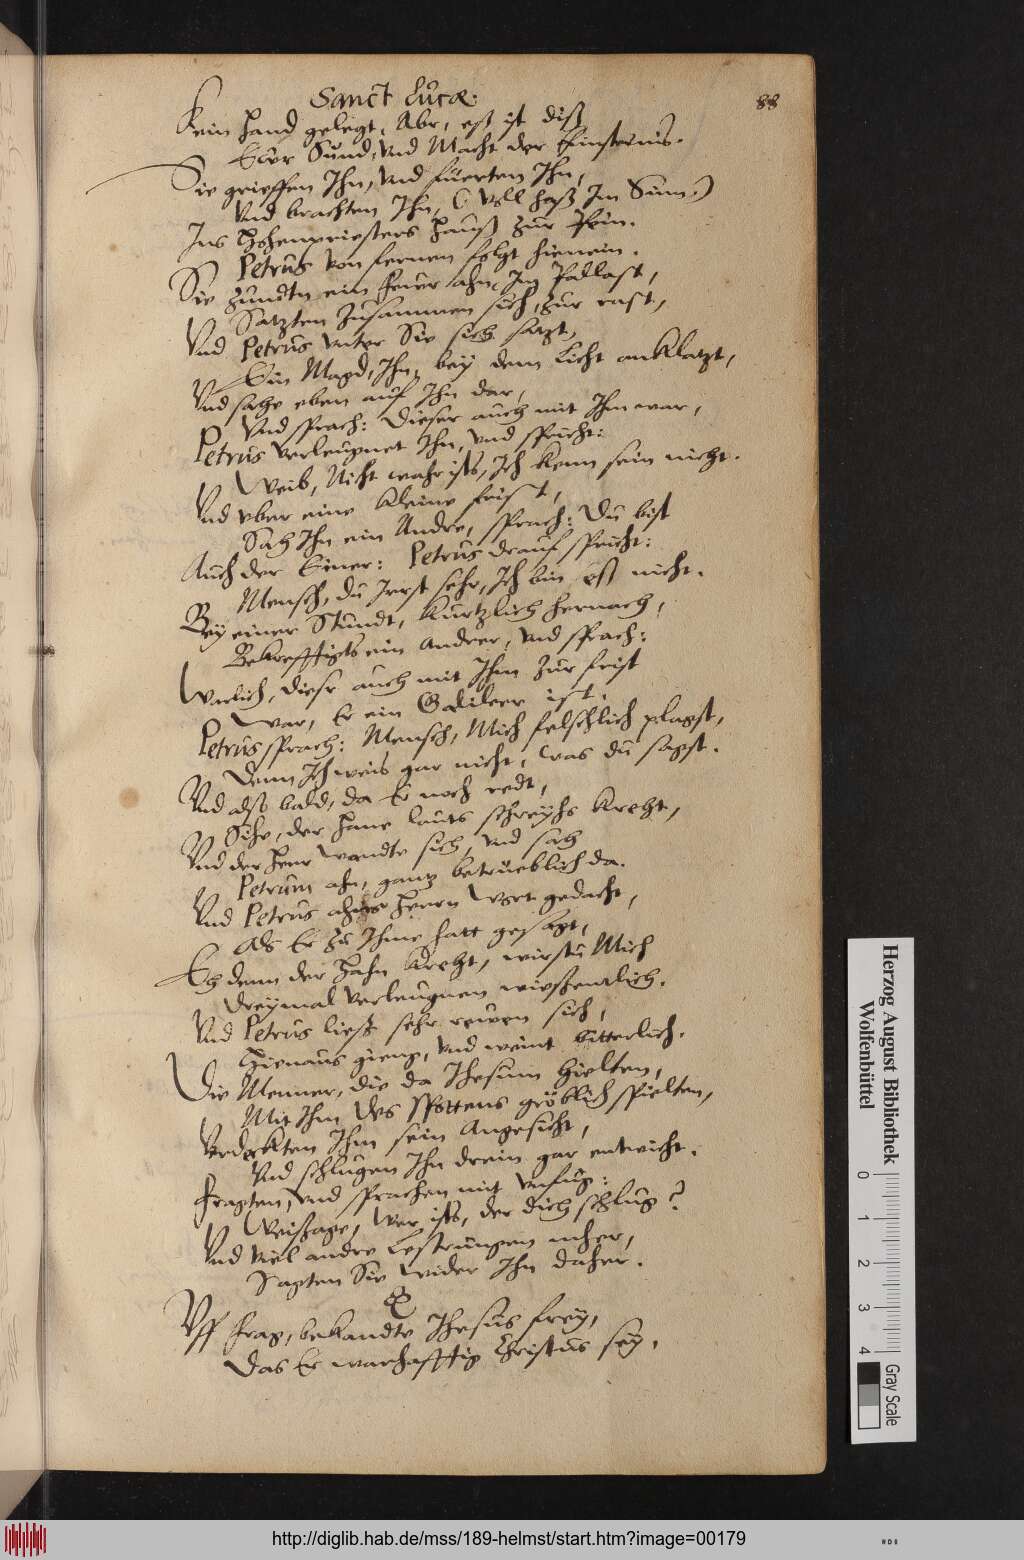 Sanct Lucæ.
88
Kein Hand gelegt, Abr, eß ist diß
Eŵr Sund, vnd Macht der Finsternis.
Sie grieffen Ihn, vnd fuerten Ihn,
Vnd brachten Ihn, (voll haß Im Sinn,)
Ins Hohenpriesters Hauß zur Pein.
Petrus von fernen folgt hienein.
Sie zundtn ein Feuer ahn, Im Pallast,
Satzten zusammen sich, zur rast,
Vnd Petrus vnter Sie sich satzt,
Ein Magd, Ihn, bey dem Licht anklatzt,
Vnd sahe eben auf Ihn dar,
Vnd sprach: Dieser auch mit Ihm war,
Petrus verleugnet Ihn, vnd spricht:
Weib, Nicht wahr ists, Ich kenn sein nicht.
Vnd vber eine kleine frist,
Sah Ihn ein Andre, sprach: Du bist
Auch der Einer: Petrus drauf spricht:
Mensch, du Irrst sehr, Ich bin eß nicht.
Bey einer Stundt, kurtzlich hernach,
Bekrefftigts ein Andrer, vnd sprach:
Warlich, dieser auch mit Ihm zur frist
War, Er ein Galileer ist.
Petrus sprach: Mensch, Mich felschlich plagst,
Denn Ich weis gar nicht, was du sagst.
Vnd alß bald, da Er noch redt,
Sihe, der Hane lauts schreyhs kreht,
Vnd der Herr wandte sich, vnd sah
Petrum ahn, gantz betrueblich da.
Vnd Petrus ahns Herrn Wort gedacht,
Als Er zu Ihme hatt gesagt,
Eh denn der Hahn kreht, wirstu Mich
Dreymal verleugnen wießentlich.
Vnd Petrus ließ sehr rewen sich,
Hienaus gieng, vnd weint bitterlich.
Die Menner, die da Ihesum hielten,
Mit Ihm des Spottens gröblich spielten,
Verdeckten Ihm sein Angesicht,
Vnd schlugen Ihn drein gar entwicht.
Fragten, vnd sprachen mit vnfug:
Weißage, Wer ists, der dich schlug?
Vnd viel andre Lestrungen mher,
Sagten Sie wider Ihn daher.
Vff frag, bekandte Ihesus frey,
Das Er warhafftig Christus sey.
Herzog August Bibliothek
Wolfenbüttel
0 1 2 3 4
Gray Scale
http://diglib.hab.de/mss/189-helmst/start.htm?image=00179